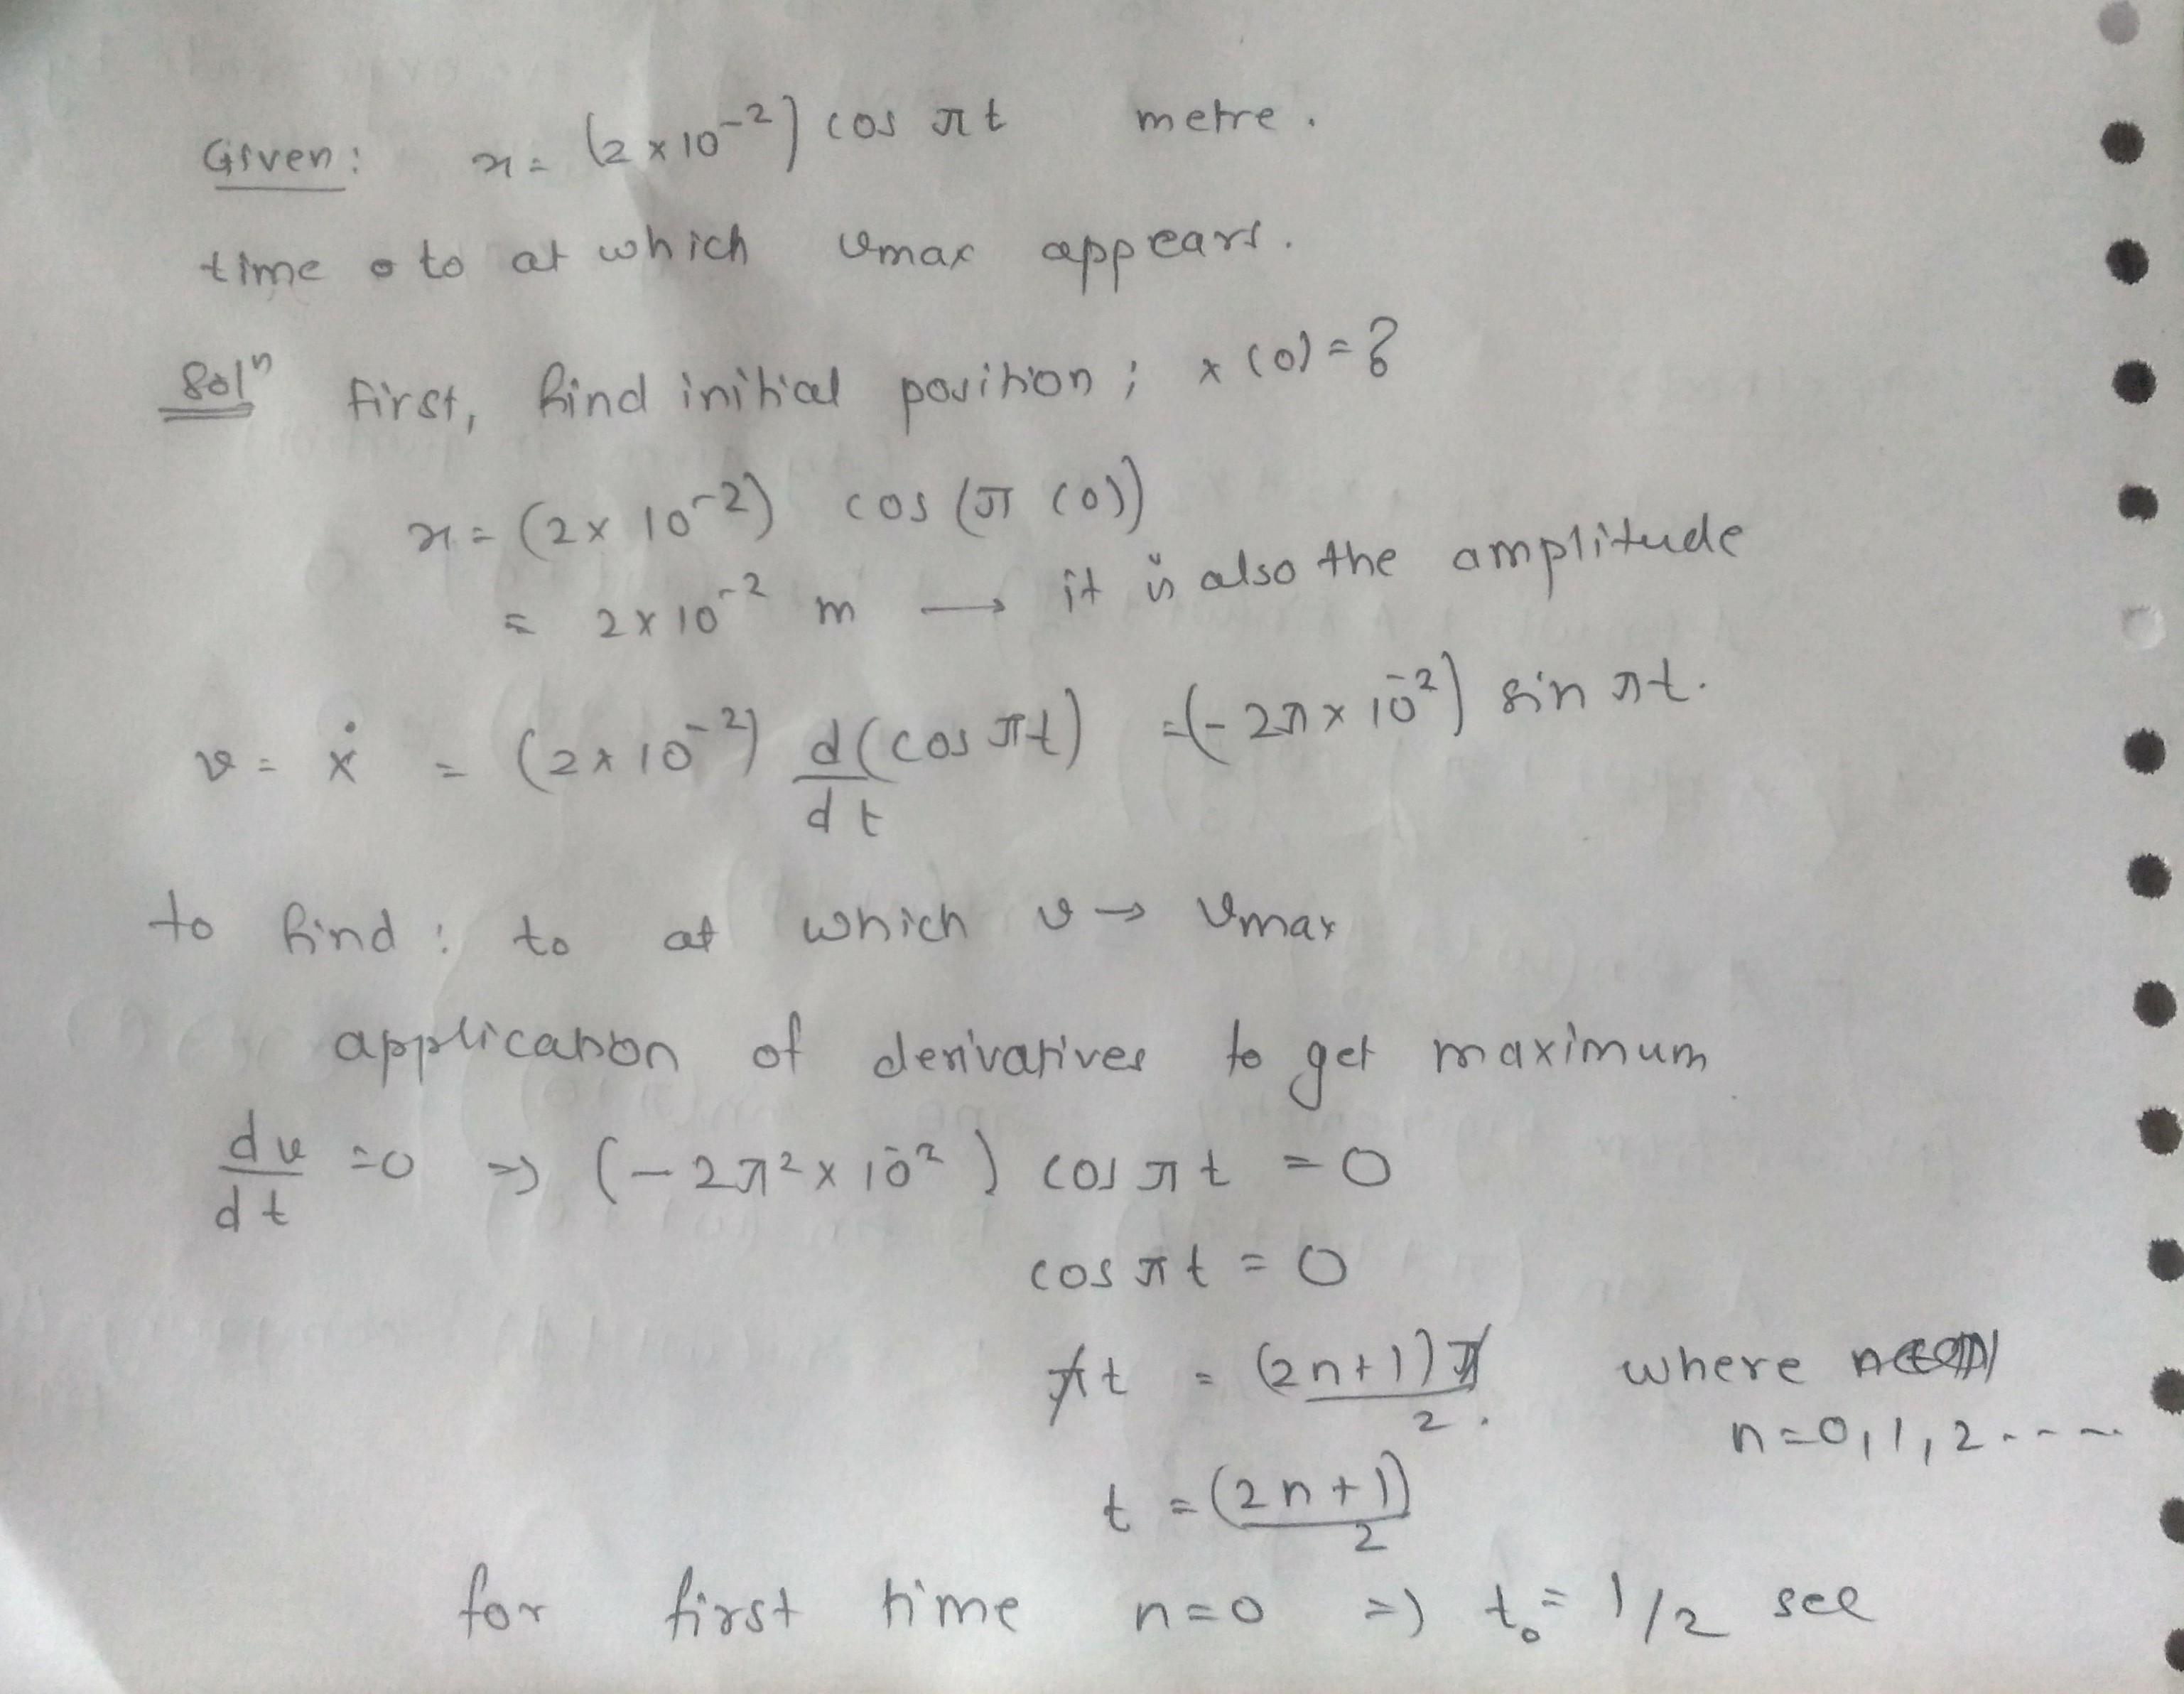 Given: x = (2 × 10⁻²) cos πt metre.
time to at which vmax appears.
Solⁿ first, find initial position; x(0) = ?
x = (2 × 10⁻²) cos (π (0))
= 2 × 10⁻² m → it is also the amplitude
v = ẋ = (2 × 10⁻²) d(cos πt)/dt = (-2π × 10⁻²) sin πt.
to find : to at which v → vmax
application of derivatives to get maximum
dv/dt = 0 => (-2π² × 10⁻²) cos πt = 0
cos πt = 0
πt = (2n+1)π/2. where
n = 0, 1, 2 ----
t = (2n+1)/2
for first time n=0 => t₀ = 1/2 sec